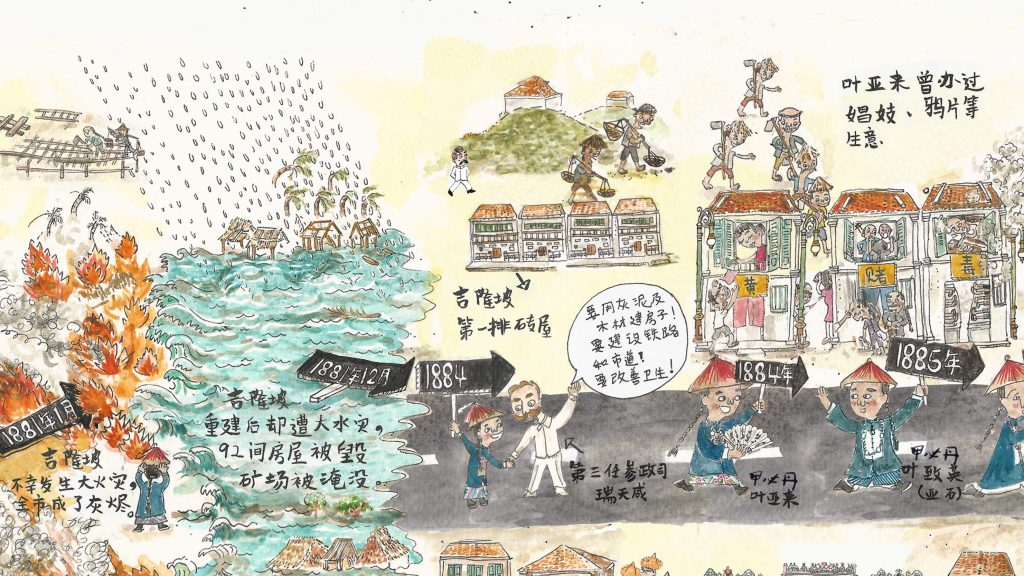 叶亚来曾办过
娼妓、鸦片等
生意
黄
赌
毒
吉隆坡
第一排砖屋
要用灰泥及
木材建房子!
要建设铁路
和市道!
要改善卫生!
1881年1月
吉隆坡
不幸发生大火灾,
全市成了灰烬。
1881年12月
吉隆坡
重建后却遭大水灾,
92间房屋被毁
矿场被淹没。
1884
第三任参政司
瑞天咸
1884年
甲必丹
叶亚来
1885年
甲必丹
叶致英
(亚石)